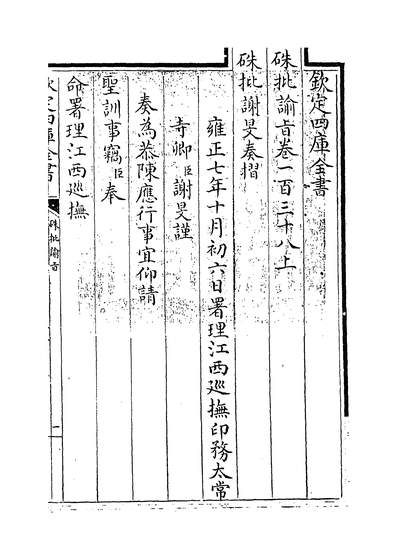 欽定四庫全書
硃批諭旨卷一百三十八上
硃批謝旻奏摺
雍正七年十月初六日署理江西巡撫印務太常
寺卿臣謝旻謹
奏為恭陳應行事宜仰請
聖訓事竊臣奉
命署理江西巡撫
欽定四庫全書
硃批諭旨
一